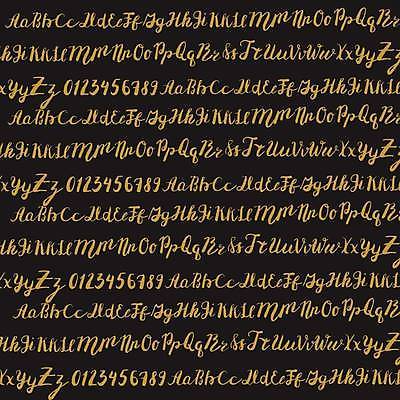 AaBbCcDdEeFfGgHhIiKkLlMmNnOoPpQq
HhIiKkLlMmNnOoPpQqRrSsTtUuVvWwXxYy
XxYyZz 0123456789 AaBbCcDdEeFfGgHhIi
AaBbCcDdEeFfGgHhIiKkLlMmNnOoPpQqRr
HhIiKkLlMmNnOoPpQqRrSsTtUuVvWwXxYyZ
XxYyZz 0123456789 AaBbCcDdEeFfGgHhIiK
AaBbCcDdEeFfGgHhIiKkLlMmNnOoPpQqRr
HhIiKkLlMmNnOoPpQqRrSsTtUuVvWwXxYyZ
XxYyZz 0123456789 AaBbCcDdEeFfGgHhIiK
AaBbCcDdEeFfGgHhIiKkLlMmNnOoPpQqRr
HhIiKkLlMmNnOoPpQqRrSsTtUuVvWwXxYyZ
XxYyZz 0123456789 AaBbCcDdEeFfGgHhIiK